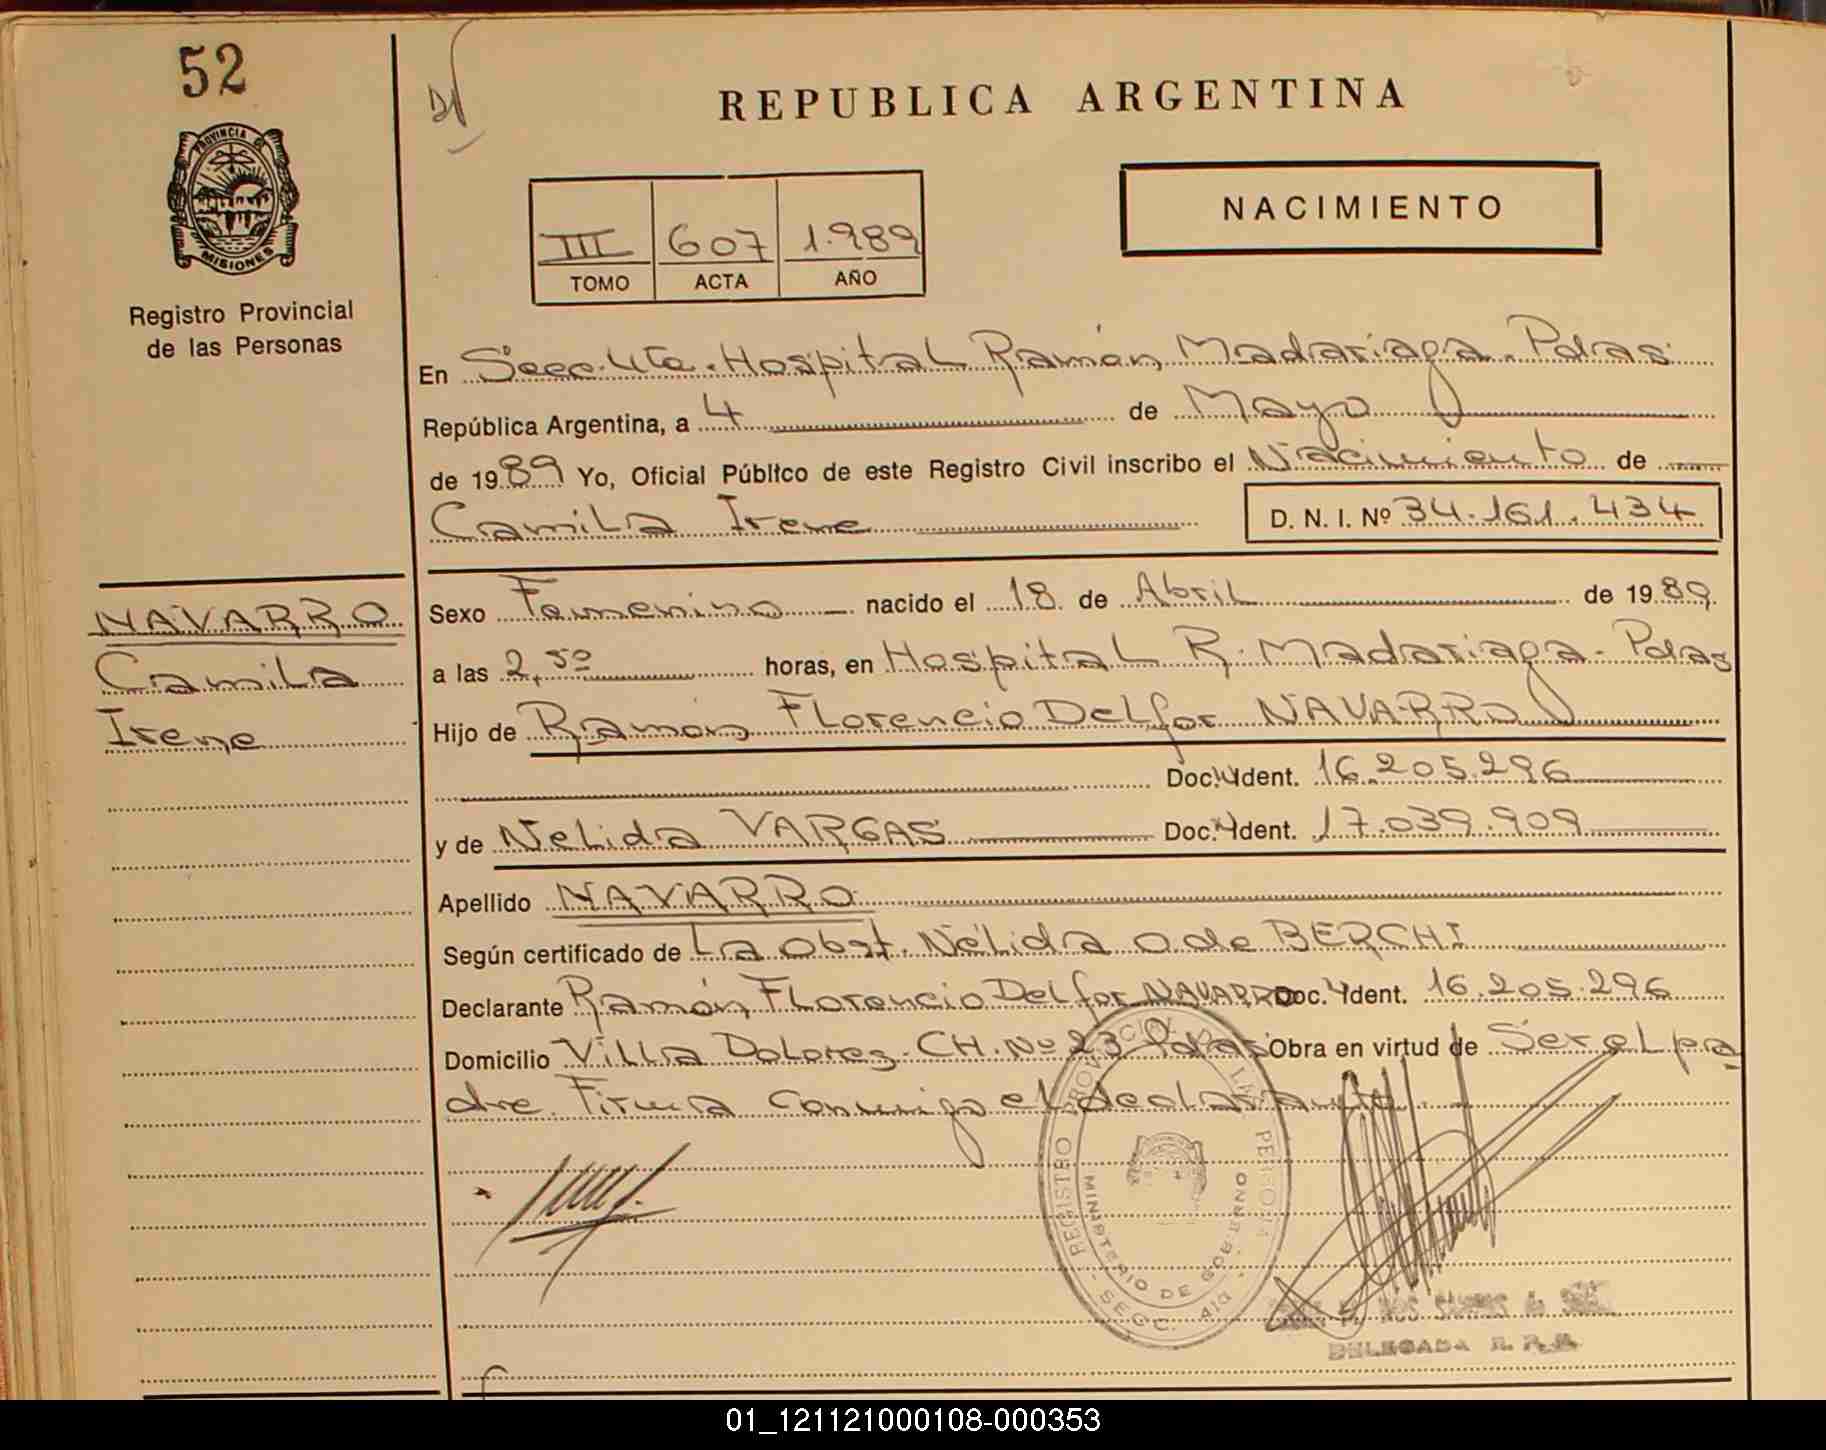 52
REPUBLICA ARGENTINA
PROVINCIA DE
MISIONES
Registro Provincial
de las Personas
NACIMIENTO
III 607 1.989
TOMO ACTA AÑO
En Secc. 4ta. Hospital Ramón Madariaga. Pdas
República Argentina, a 4 de Mayo
de 1989 Yo, Oficial Público de este Registro Civil inscribo el Nacimiento de
Camila Irene D. N. I. Nº 34.161.434
NAVARRO
Camila
Irene
Sexo Femenino nacido el 18 de Abril de 1989
a las 2,50 horas, en Hospital R. Madariaga. Pdas
Hijo de Ramón Florencio Delfor NAVARRO
Doc. Ident. 16.205.296
y de Nelida VARGAS Doc. Ident. 17.039.909
Apellido NAVARRO
Según certificado de La Obst. Nélida O de BERCHI
Declarante Ramón Florencio Delfor NAVARRO Doc. Ident. 16.205.296
Domicilio Villa Dolores. CH. Nº 23 Pdas Obra en virtud de Ser el pa
dre. Firma conmigo el declarante.
REGISTRO PROVINCIAL DE LAS PERSONAS
MINISTERIO DE GOBIERNO
SECC.
DELEGADA R. P. P.
01_121121000108-000353